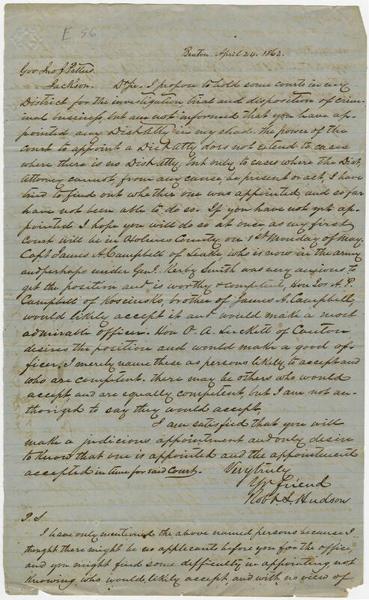 E 56
Benton April 24. 1863.
Gov Jno J Pettus
Jackson. I propose to hold some courts in my
District for the investigation trial and disposition of crim-
inal business, but am not informed that you have ap-
pointed any Dist Atty in my stead. the power of the
court to appoint a Dist Atty does not extend to cases
where there is no Dist Atty, but only to cases where the Dist
Attorney cannot from any cause, be present or act, I have
tried to find out whether one was appointed, and so far
have not been able to do so. If you have not yet ap-
pointed I hope you will do so at once as my first
Court will be in Holmes County on 1st Monday of May.
Capt James A Campbell of Leake who is now in the army
and perhaps under Genl. Kerby Smith was very anxious to
get the position and is worthy & competent, Hon J. A. P.
Campbell of Kosciusko, brother of James A. Campbell,
would likely accept it and would make a most
admirable officer. Hon O A. Luckett of Canton
desires the position and would make a good of-
ficer, I merely name these as persons likely to accept and
who are competent. there may be others who would
accept and are equally competent, but I am not au-
thorized to say they would accept,
I am satisfied that you will
make a judicious appointment and only desire
to know that one is appointed and the appointment
accepted in time for said Court.
Very truly
Yr friend
Robt S. Hudson
P. S.
I have only mentioned the above named persons because I
thought there might be no applicants before you for the office,
and you might find some difficulty in appointing not
knowing who would likely accept, and with no view of